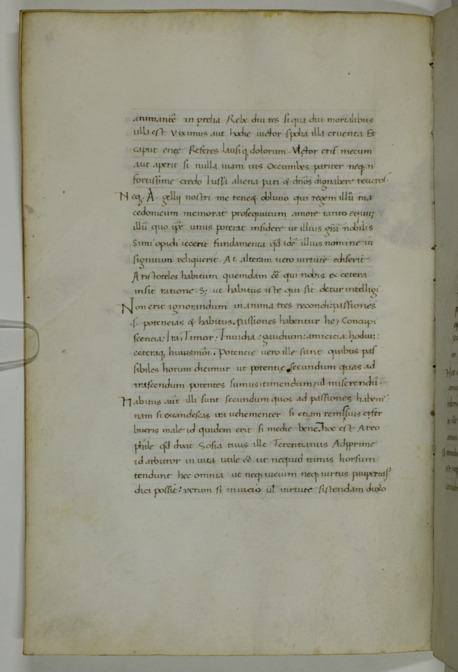 animante in prelia Rebe diu res siqua diu mortalibus
ulla est Viximus aut hodie uictor spolia illa cruenta Et
caput enee Referes lausiq dolorum Vltor eris mecum
aut aperit si nulla uiam uis Occumbes pariter neq n
fortissime credo Iussa aliena pati & dnos dignabere teucros
Neq A gellii nostri me teneq obliuio qui regem illu ma
cedonicum memorat prosequutum amore tanto equu
illu quo ipe unus poterat insidere ut illius gra nobilis
simi opidi iecerit fundamenta qd ide illius nomine in
signitum reliquerit At alteram uero uirtute edisserit
Aristoteles habitum quemdam ee qui nobis ex cetera
insit ratione Sz ut habitus iste qui sit detur intelligi
Non erit ignorandum in anima tres recondi passiones
& potencias & habitus. passiones habentur hec Concupi
scencia: Ira: Timor: Inuidia: gaudium: amicicia: hodiu:
ceteraq huiusmoi. Potencie uero ille sunt quibus pas
sibiles horum dicimur ut potentie secundum quas ad
irascendum potentes sumus timendum ul miserendu.
Habitus aut illi sunt secundum quos ad passiones habem
nam si excandescas uti uehementer si etiam remissius
bueris male id quidem erit si medie bene. hoc est Areo
phile qd dixit Sosia tuus ille Terentianus Adprime
id arbitror in uita utile ee ut nequid nimis horsum
tendunt hec omnia ut neq uicium neq uirtus
dici possit: uerum si in uicio ul uirtute sistendam duxo